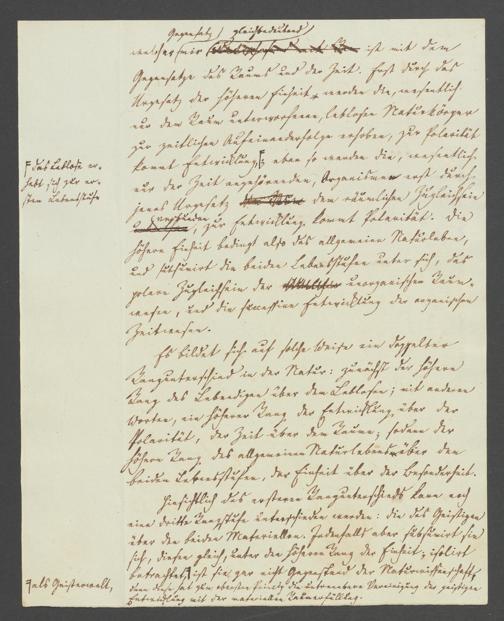 Gegensatz, gleichbedeutend
welcher mir ist mit dem
Gegensatze des Raums und der Zeit. Erst durch das
Urgesetz der höheren Einheit werden die, wesentlich
nur dem Raum unterworfenen, leblosen Naturkörper
zur zeitlichen Aufeinanderfolge erhoben, zur Polarität
kommt Entwicklung; eben so werden die, wesentlich
nur der Zeit angehörenden, Organismen erst durch
jenes Urgesetz dem räumlichen Zugleichsein
verbunden, zur Entwicklung kommt Polarität. Die
höhere Einheit bedingt also das allgemeine Naturleben,
und subsumirt die beiden Lebensstufen unter sich, das
polare Zugleichsein der unorganischen Raum-
wesen, und die successive Entwicklung der organischen
Zeitwesen.
Es bildet sich auf solche Weise ein doppelter
Rangunterschied in der Natur: zunächst der höhere
Rang des Lebendigen über dem Leblosen; mit anderen
Worten, ein höherer Rang der Entwicklung über der
Polarität, der Zeit über dem Raume; sodann der
höhere Rang des allgemeinen Naturlebens über den
beiden Lebensstufen, der Einheit über der Besonderheit.
Hinsichtlich des ersteren Rangunterschieds kann noch
eine dritte Rangstufe unterschieden werden: die des Geistigen
über den beiden Materiellen. Jedenfalls aber subsumirt sie
sich, diesen gleich, unter den höheren Rang der Einheit; isolirt
betrachtet, ist sie gar nicht Gegenstand der Naturwissenschaft,
denn diese hat zum die untrennbare Vereinigung der geistigen
Entwicklung mit der materiellen Raumerfüllung.
das Leblose er-
hebt sich zur er-
sten Lebensstufe
als Geisterwelt,